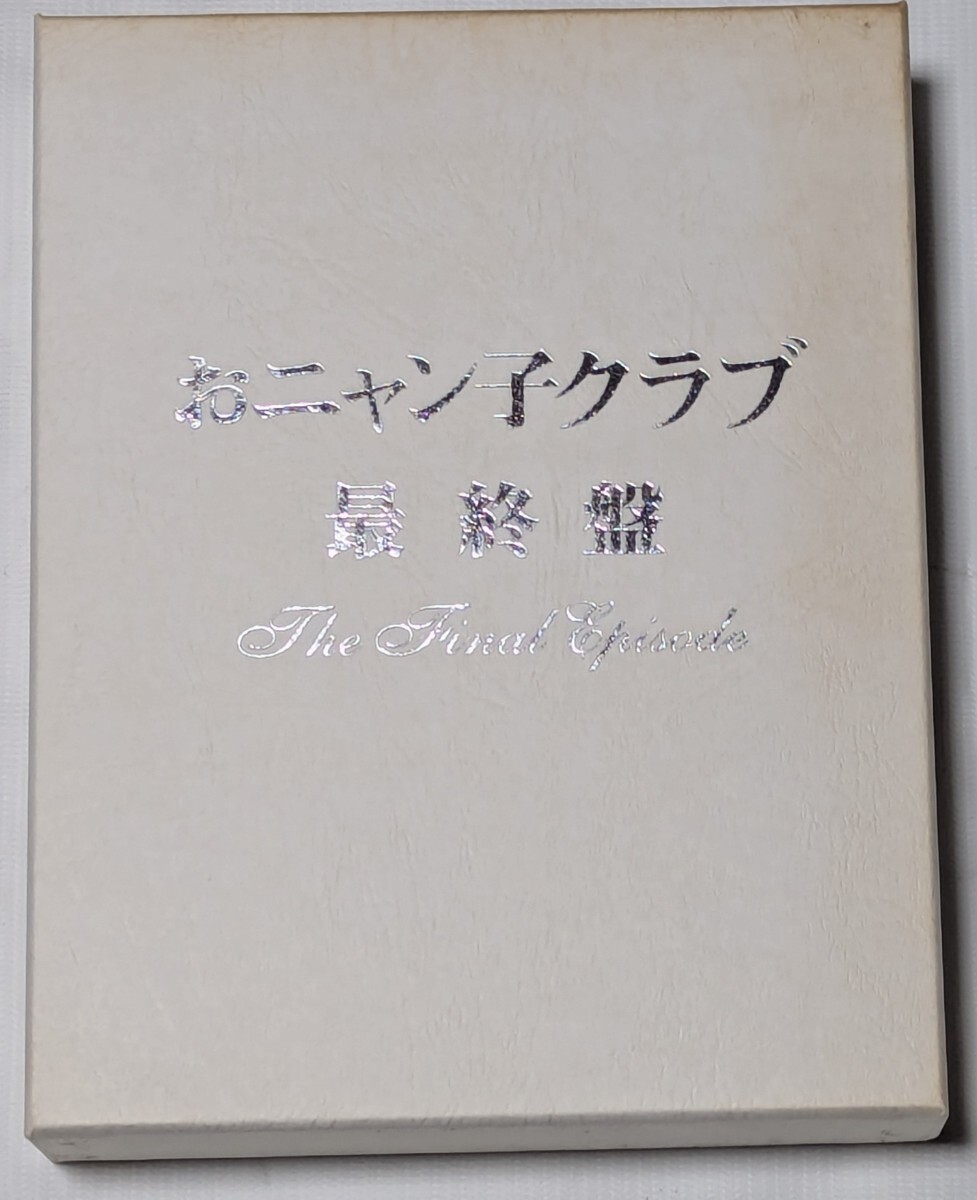 おニャン子クラブ
最終盤
The Final Episode